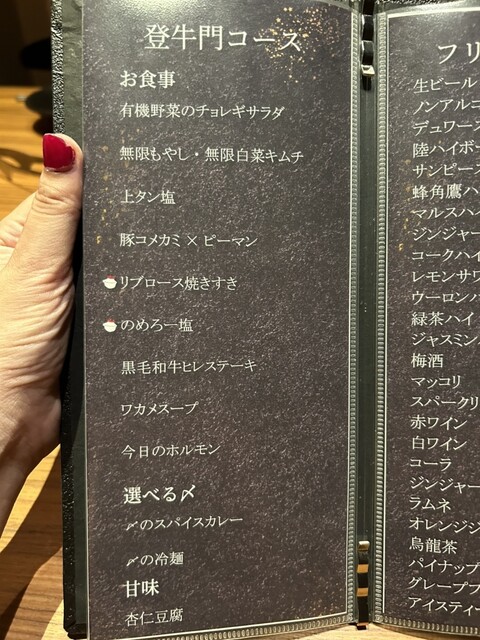 登牛門コース
お食事
有機野菜のチョレギサラダ
無限もやし・無限白菜キムチ
上タン塩
豚コメカミ×ピーマン
リブロース焼きすき
のめろー塩
黒毛和牛ヒレステーキ
ワカメスープ
今日のホルモン
選べる〆
〆のスパイスカレー
〆の冷麺
甘味
杏仁豆腐
フリ
生ビール
ノンアルコ
デュワース
陸ハイボー
サンピース
蜂角鷹ハ
マルスハイ
ジンジャー
コークハイ
レモンサワ
ウーロンハ
緑茶ハイ
ジャスミン
梅酒
マッコリ
スパークリ
赤ワイン
白ワイン
コーラ
ジンジャー
ラムネ
オレンジジ
烏龍茶
パイナップ
グレープフ
アイスティー